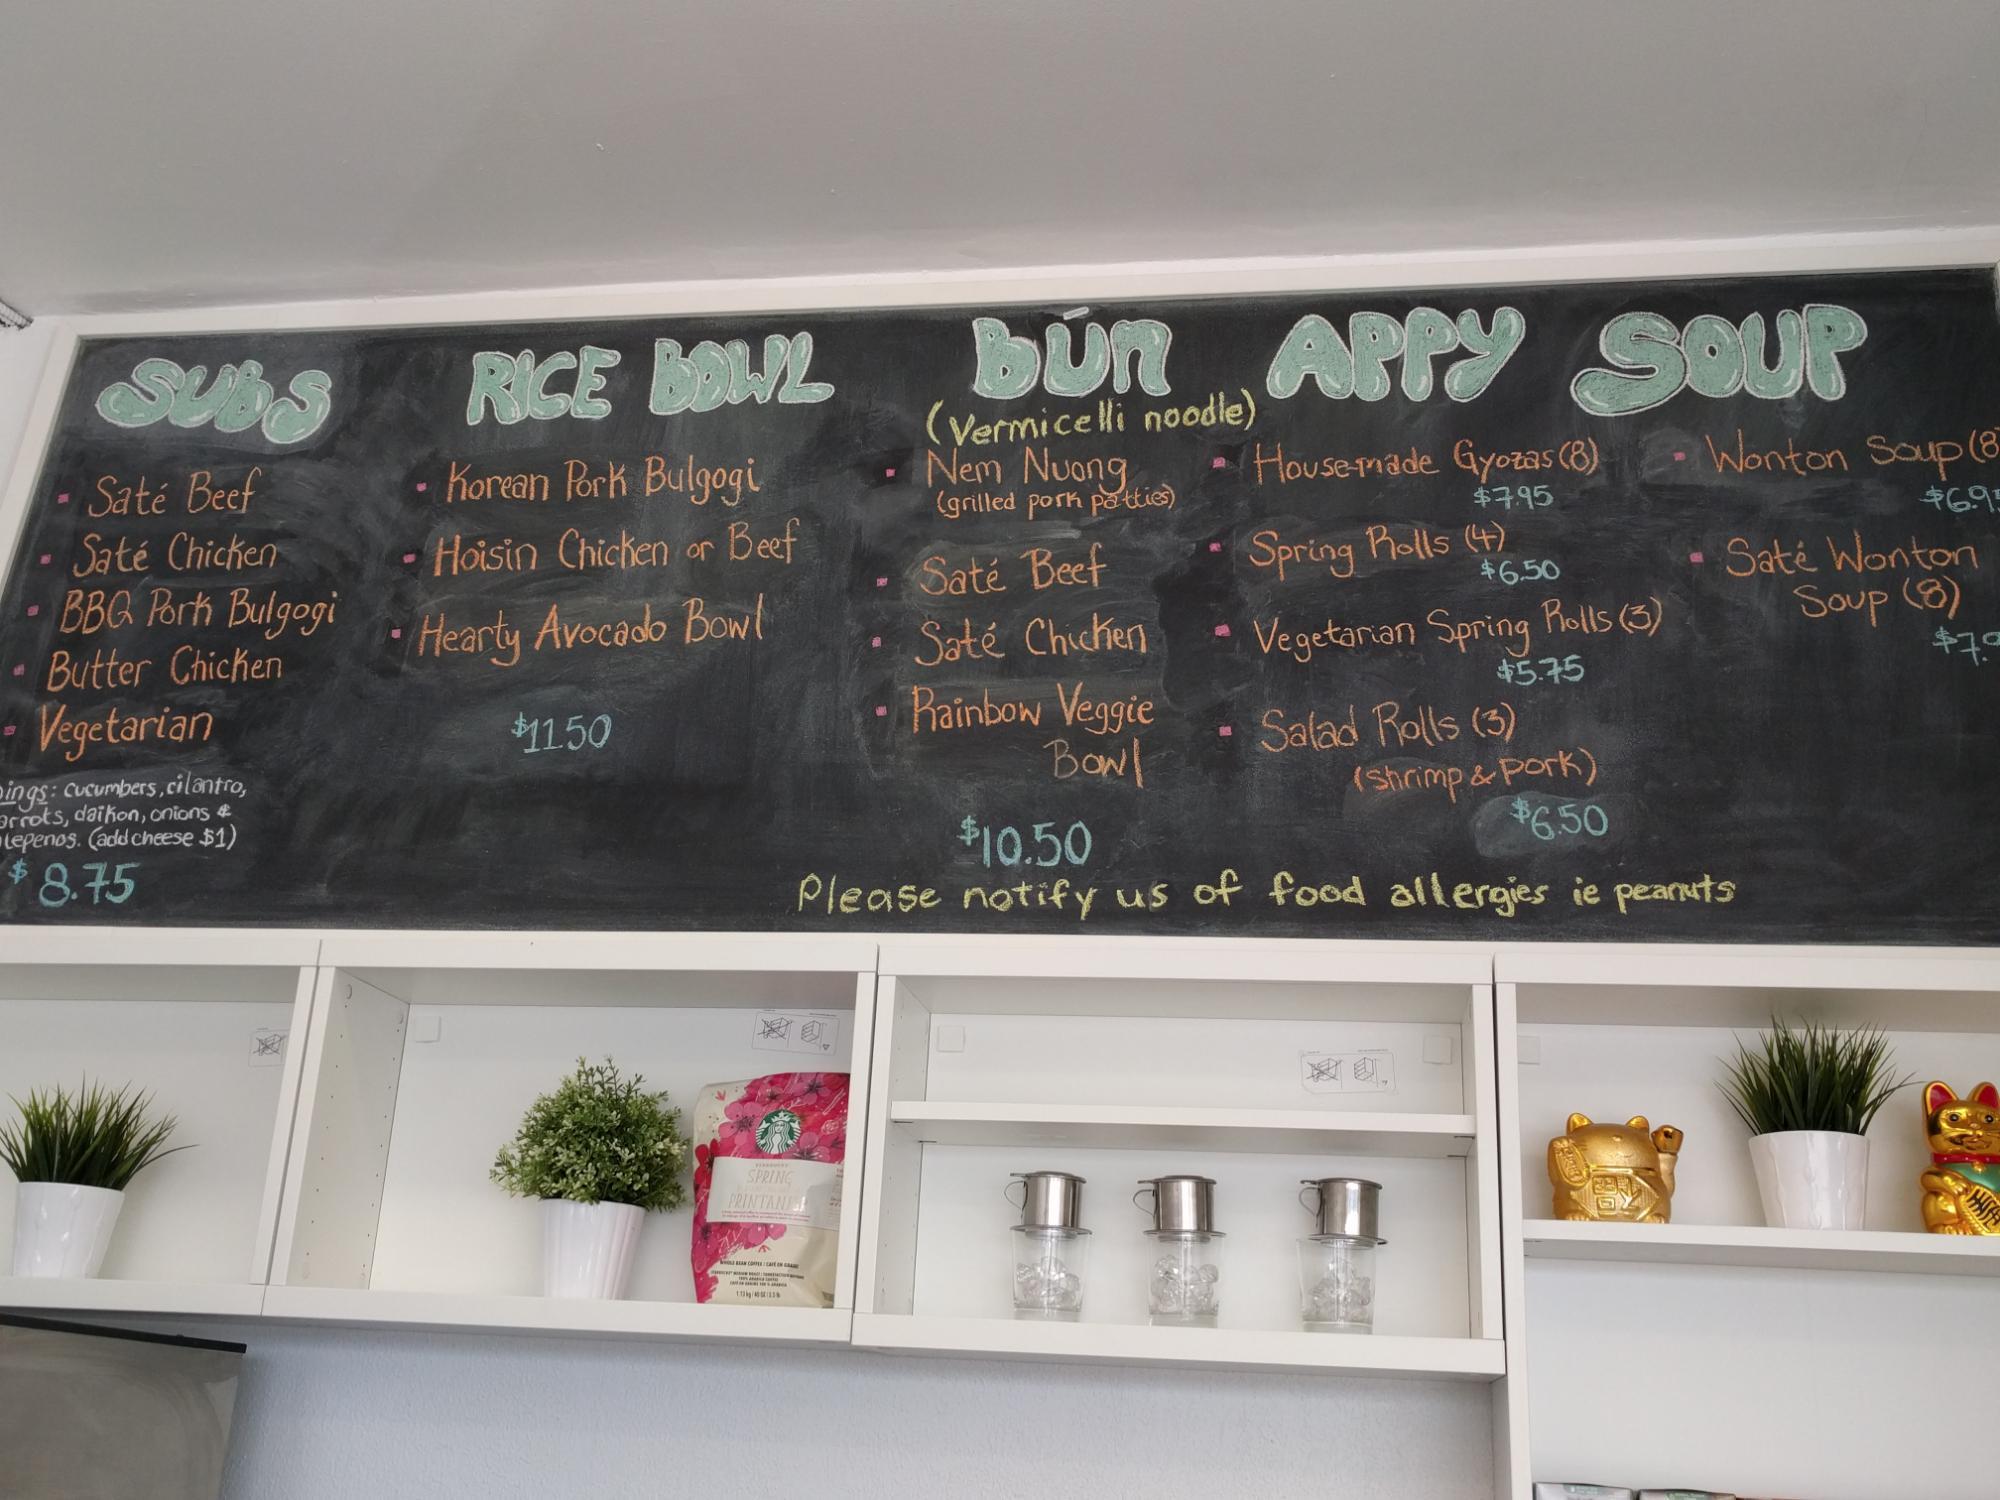 SUBS
Saté Beef
Saté Chicken
BBQ Pork Bulgogi
Butter Chicken
Vegetarian
cucumbers, cilantro,
daikon, onions &
(add cheese $1)
$8.75
RICE BOWL
Korean Pork Bulgogi
Hoisin Chicken or Beef
Hearty Avocado Bowl
$11.50
bun
(Vermicelli noodle)
Nem Nuong
(grilled pork patties)
Saté Beef
Saté Chicken
Rainbow Veggie
Bowl
$10.50
APPY
House-made Gyozas (8)
$7.95
Spring Rolls (4)
$6.50
Vegetarian Spring Rolls (3)
$5.75
Salad Rolls (3)
(shrimp & pork)
$6.50
SOUP
Wonton Soup (8)
Saté Wonton
Soup (8)
Please notify us of food allergies ie peanuts
SPRING
PRINTANIER
WHOLE BEAN COFFEE / CAFÉ EN GRAINS